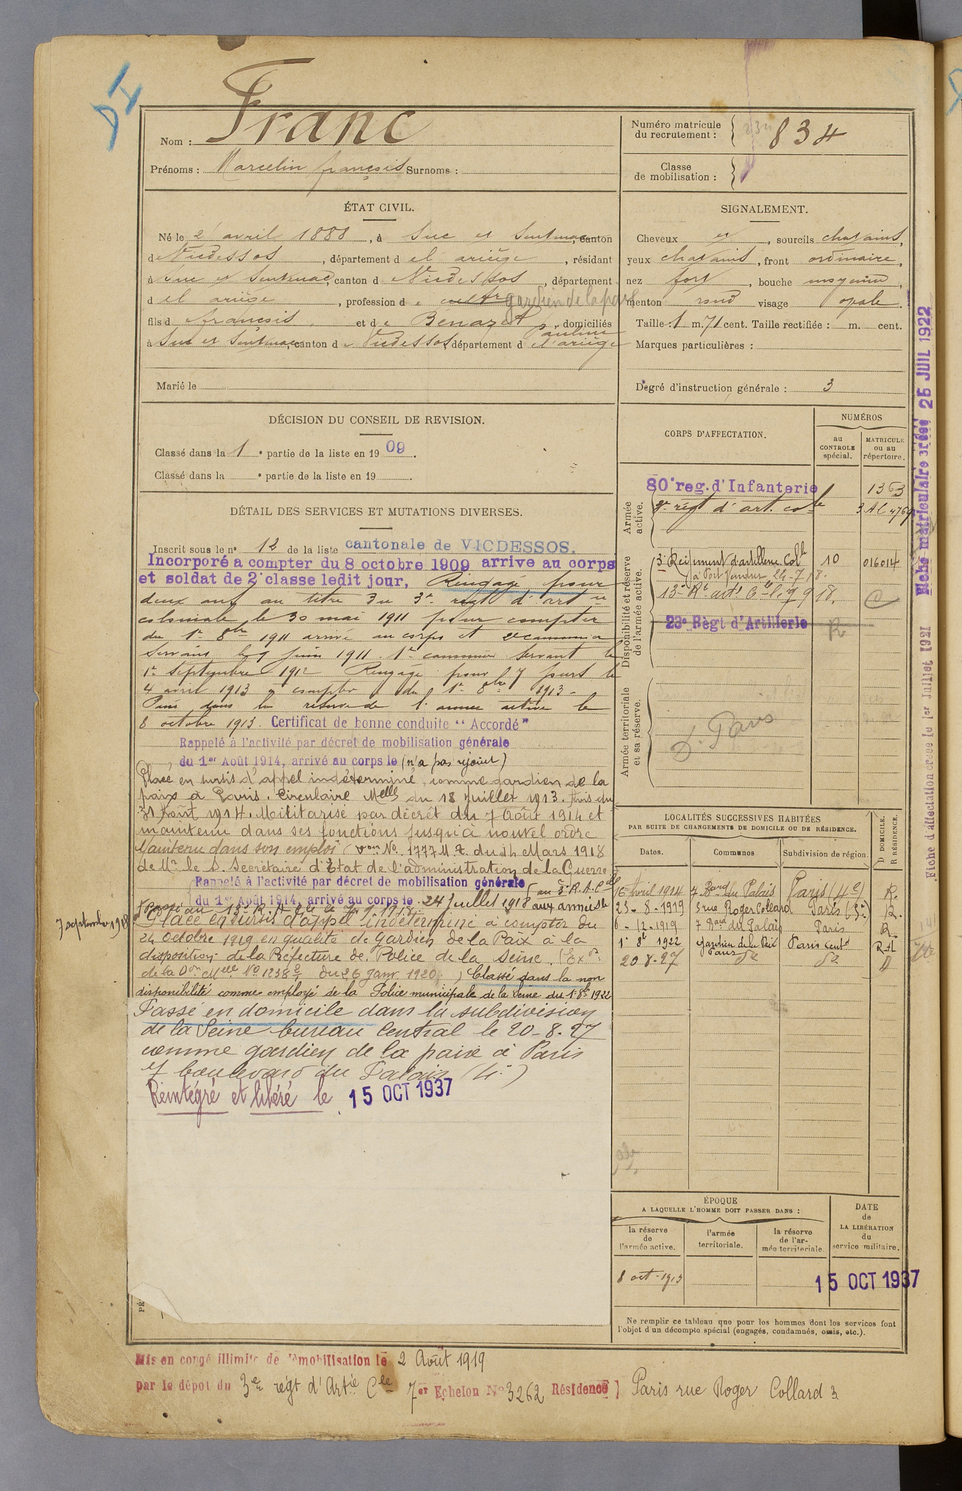 Nom : Franc
Prénoms : Marcelin françois Surnoms :
Numéro matricule du recrutement : 834
Classe de mobilisation :
ÉTAT CIVIL.
Né le 2 avril 1888, à Suc et Sentenac, canton
de Vicdessos, département d el ariège, résidant
à Suc et Sentenac, canton d e Vicdessos, département
d el ariège, profession d e cultr gardien de la paix
fils d françois et d e Bénazet Pauline, domiciliés
à Suc et Sentenac, canton d e Vicdessos département d el'ariège
Marié le
SIGNALEMENT.
Cheveux et, sourcils chatains,
yeux chatains, front ordinaire,
nez fort, bouche moyenne
menton rond visage opale
Taille : 1 m. 71 cent. Taille rectifiée : m. cent.
Marques particulières :
Degré d'instruction générale : 3
DÉCISION DU CONSEIL DE REVISION.
Classé dans la 1e partie de la liste en 1909.
Classé dans la e partie de la liste en 19
DÉTAIL DES SERVICES ET MUTATIONS DIVERSES.
Inscrit sous le n° 12 de la liste cantonale de VICDESSOS.
Incorporé à compter du 8 octobre 1909 arrivé au corps
et soldat de 2e classe ledit jour, Rengagé pour
deux ans au titre du 3e regt d'artie
coloniale le 30 mai 1911 pour compter
du 1er 8bre 1911 arrivé au corps et 2e canonnier
servant le 7 juin 1911. 1er canonnier servant le
1er septembre 1912 Rengagé pour 7 jours le
4 avril 1913 à compter du 1er 8bre 1913 -
Passé dans la réserve de l'armée active le
8 octobre 1913. Certificat de bonne conduite "Accordé"
Rappelé à l'activité par décret de mobilisation générale
du 1er Août 1914, arrivé au corps le (n'a pas rejoint)
Placé en sursis d'appel indéterminé comme gardien de la
paix à Paris. Circulaire Melle du 18 Juillet 1913.
Août 1914. Militarisé par décret du 7 Août 1914 et
maintenu dans ses fonctions jusqu'à nouvel ordre
Maintenu dans son emploi No. 1777 du 14 Mars 1918
de Mr. le S. Secrétaire d'Etat de l'administration de la Guerre
Rappelé à l'activité par décret de mobilisation générale au 3e R.A.Cle
du 1er Août 1914, arrivé au corps le 24 juillet 1918 aux armées le
7 septembre 1918
Placé en sursis d'appel indéterminé à compter du
24 Octobre 1919 en qualité de Gardien de la Paix à la
disposition de la Préfecture de Police de la Seine. (Exon
de la Don Melle No 1238 du 26 Janv 1920) Classé dans la non
disponibilité comme employé de la Police municipale de la Seine du 1er 8bre 1922
Passé en domicile dans la subdivision
de la Seine bureau central le 20-8-27
comme gardien de la paix à Paris
7 boulevard du Palais (4e)
Réintégré et libéré le 15 OCT 1937
CORPS D'AFFECTATION.
NUMÉROS
au CONTROLE spécial.
MATRICULE ou au répertoire.
Armée active.
80e reg. d'Infanterie 1363
3e régt d'art. cole
Disponibilité et réserve de l'armée active.
3e Régiment d'artillerie Colle 10 016014
24-7-18.
23e Règt d'Artillerie R
Armée territoriale et sa réserve.
Paris
LOCALITÉS SUCCESSIVES HABITÉES
PAR SUITE DE CHANGEMENTS DE DOMICILE OU DE RÉSIDENCE.
Dates. Communes Subdivision de région. D DOMICILE. R RÉSIDENCE.
16 Avril 1914 7 Bard du Palais Paris (4e) R.
23-8-1919 3 rue Roger Collard Paris (5e) R.
6-12-1919 7 Bard du Palais Paris R.
1er 8b 1922 Gardien de la Paix Paris Paris cent
20-8-27 do do D
ÉPOQUE
A LAQUELLE L'HOMME DOIT PASSER DANS :
la réserve de l'armée active.
l'armée territoriale.
la réserve de l'armée territoriale.
DATE de LA LIBÉRATION du service militaire.
8 oct. 1913
15 OCT 1937
Ne remplir ce tableau que pour les hommes dont les services font
l'objet d'un décompte spécial (engagés, condamnés, omis, etc.).
Fiche matriculaire créée 25 JUIL 1922
Fiche d'affectation créée le 1er Juillet 1921
Mis en congé illimité de démobilisation le 2 Août 1919
par le dépôt du 3e régt d'Artie Cle 7er Echelon No 3262 Résidence] Paris rue Roger Collard 3